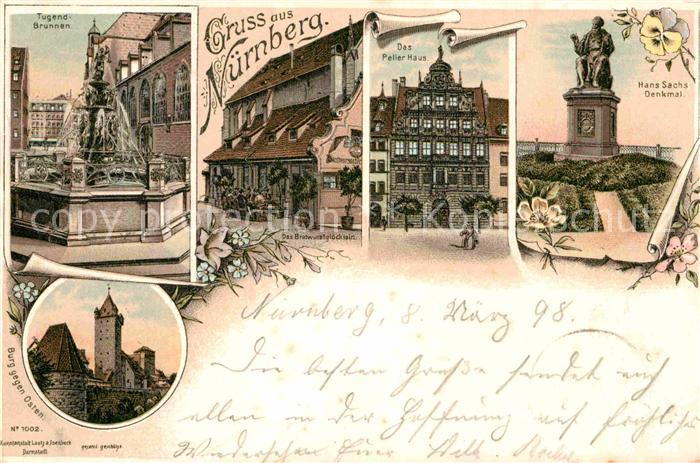 Tugend-
Brunnen.
Gruss aus
Nürnberg.
Das
Peller Haus.
Hans Sachs
Denkmal.
Das Bratwurstglöcklein.
Burg gegen Osten.
Nº 1002.
Kunstanstalt Lautz & Isenbeck
Darmstadt.
gesetzl. geschützt.
copyright protection AK-Ansichtskarten-Schutz
Nürnberg, 8. März 98.
Die besten Grüße sendet euch
allen in der Hoffnung auf fröhliches
Wiedersehen Euer